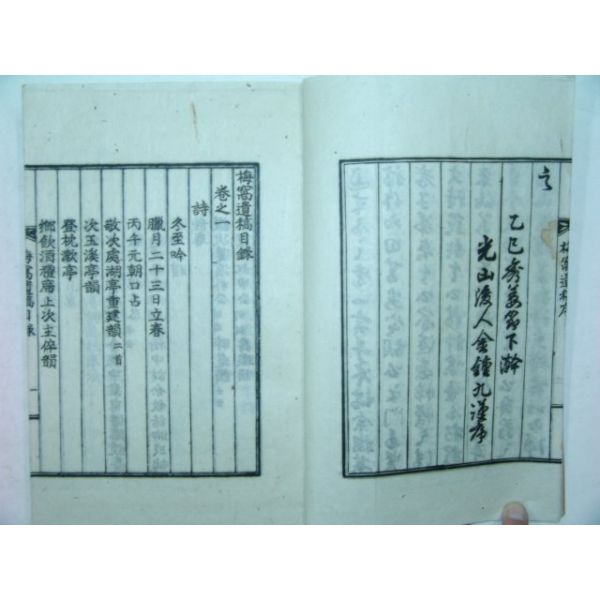 言
乙巳 下澣
光山后人金鍾九謹序
梅窩遺稿目錄
卷之一
詩
冬至吟
臘月二十三日立春
丙午元朝口占
敬次處湖亭重建韻 二首
次玉溪亭韻
登枕漱亭
鄉飲酒種席上次主倅韻
梅窩遺稿目錄 一
梅窩遺稿序